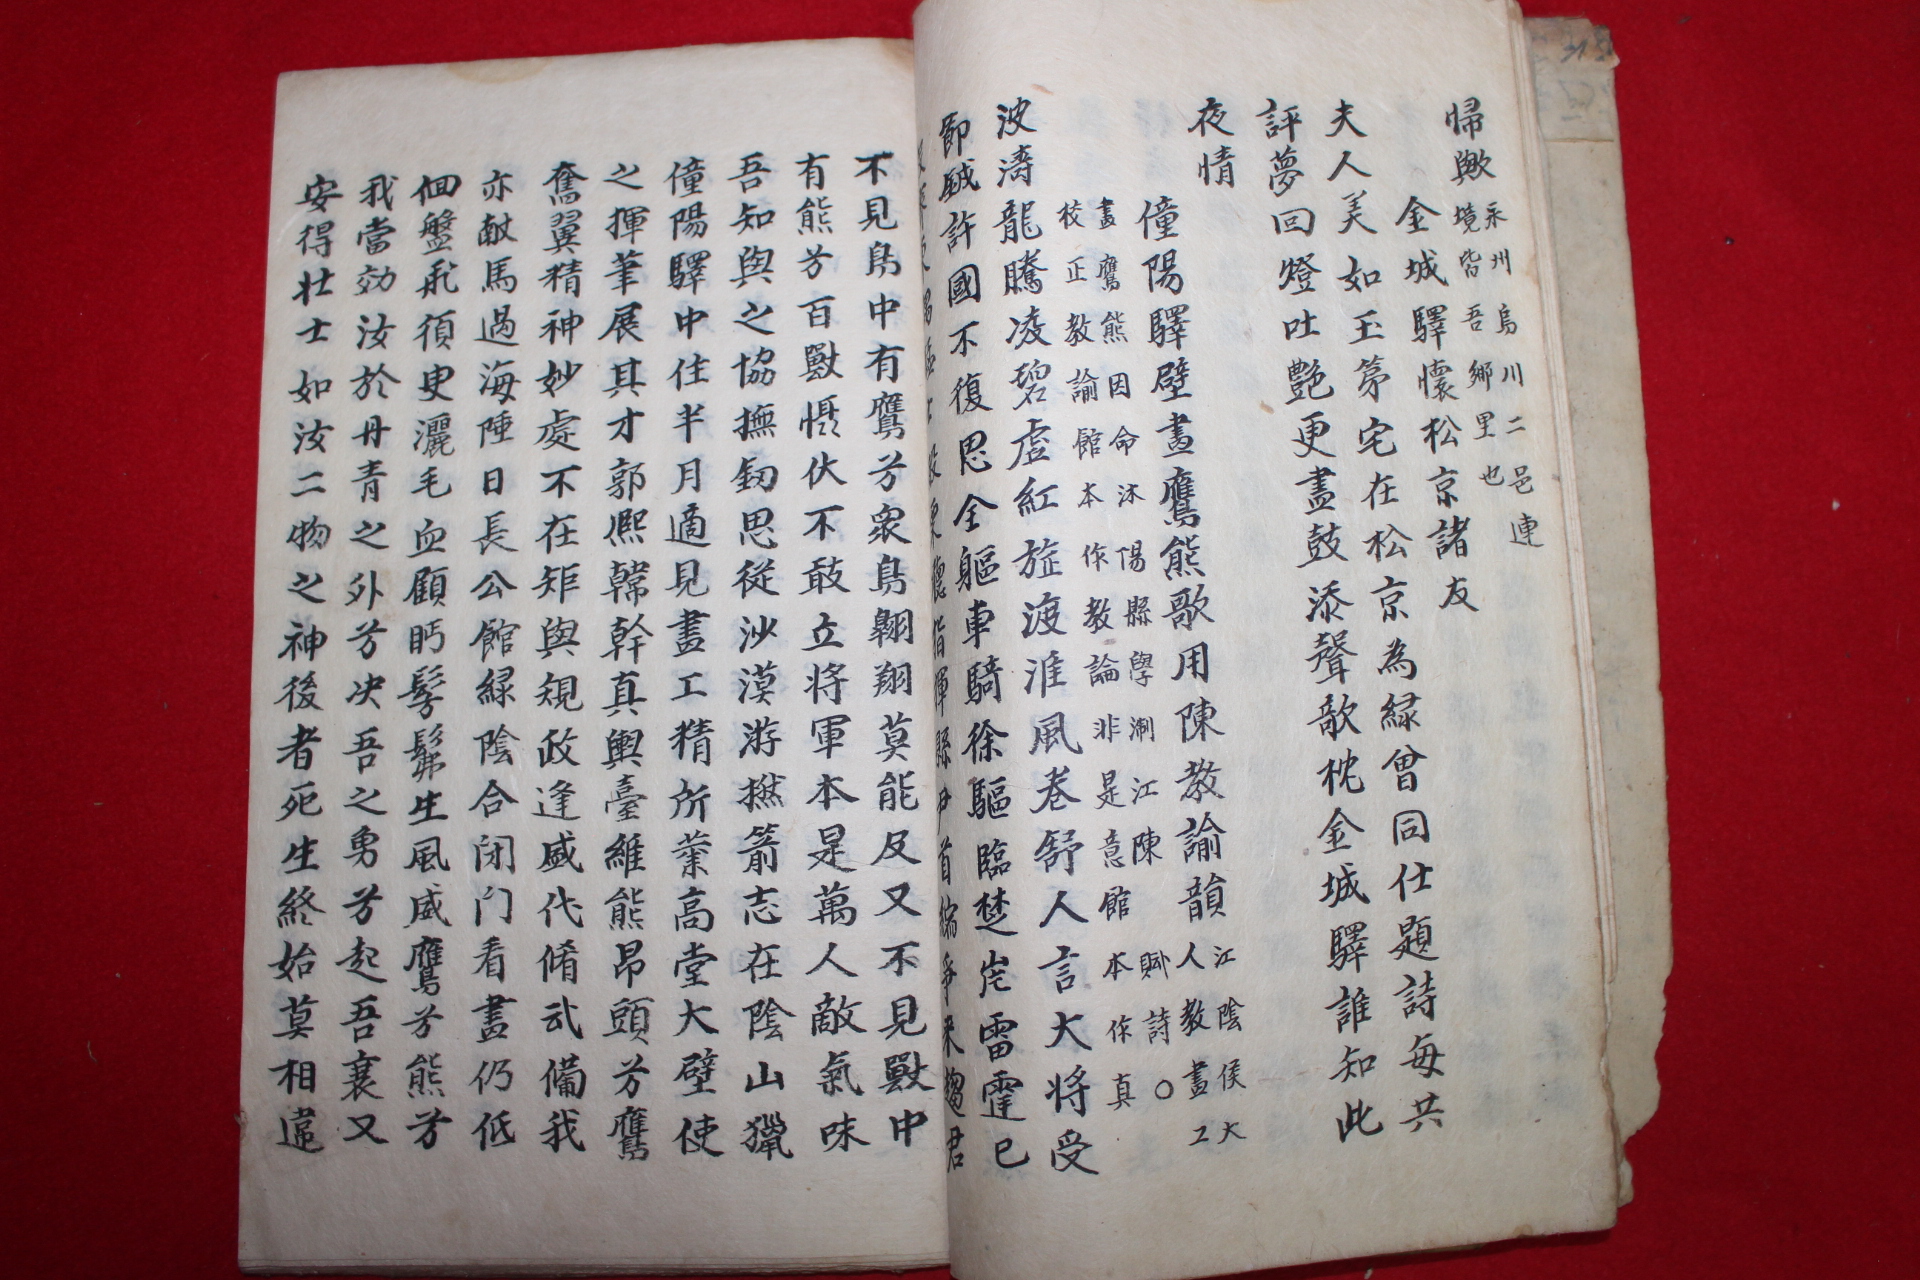 歸歟 永州烏川二邑連
境皆吾鄉里也
金城驛懷松京諸友
夫人美如玉第宅在松京為緑曾同仕題詩每共
評夢回燈吐艷更盡鼓添聲欹枕金城驛誰知此
夜情
僮陽驛壁畫鷹熊歌用陳教諭韻 江陰侯大
人教畫工
畫鷹熊因命沐陽縣學淛江陳賦詩○
校正教諭館本作教論非是意館本作真
波濤龍騰凌碧虛紅旌渡淮風卷舒人言大將受
節鉞許國不復思全軀車騎徐驅臨楚岸雷霆已
不見鳥中有鷹兮衆鳥翺翔莫能及又不見獸中
有熊兮百獸慴伏不敢立將軍本是萬人敵氣味
吾知與之協撫劒思從沙漠游撚箭志在陰山獵
僮陽驛中住半月適見畫工精所業高堂大壁使
之揮筆展其才郭熈韓幹真輿臺維熊昂頭兮鷹
奮翼精神妙處不在矩與規政逢盛代脩武備我
亦獻馬過海陲日長公館緑陰合閉門看畫仍低
佪盤飛須臾灑毛血顧眄髣髴生風威鷹兮熊兮
我當効汝於丹青之外兮决吾之勇兮起吾衰又
安得壮士如汝二物之神後者死生終始莫相違